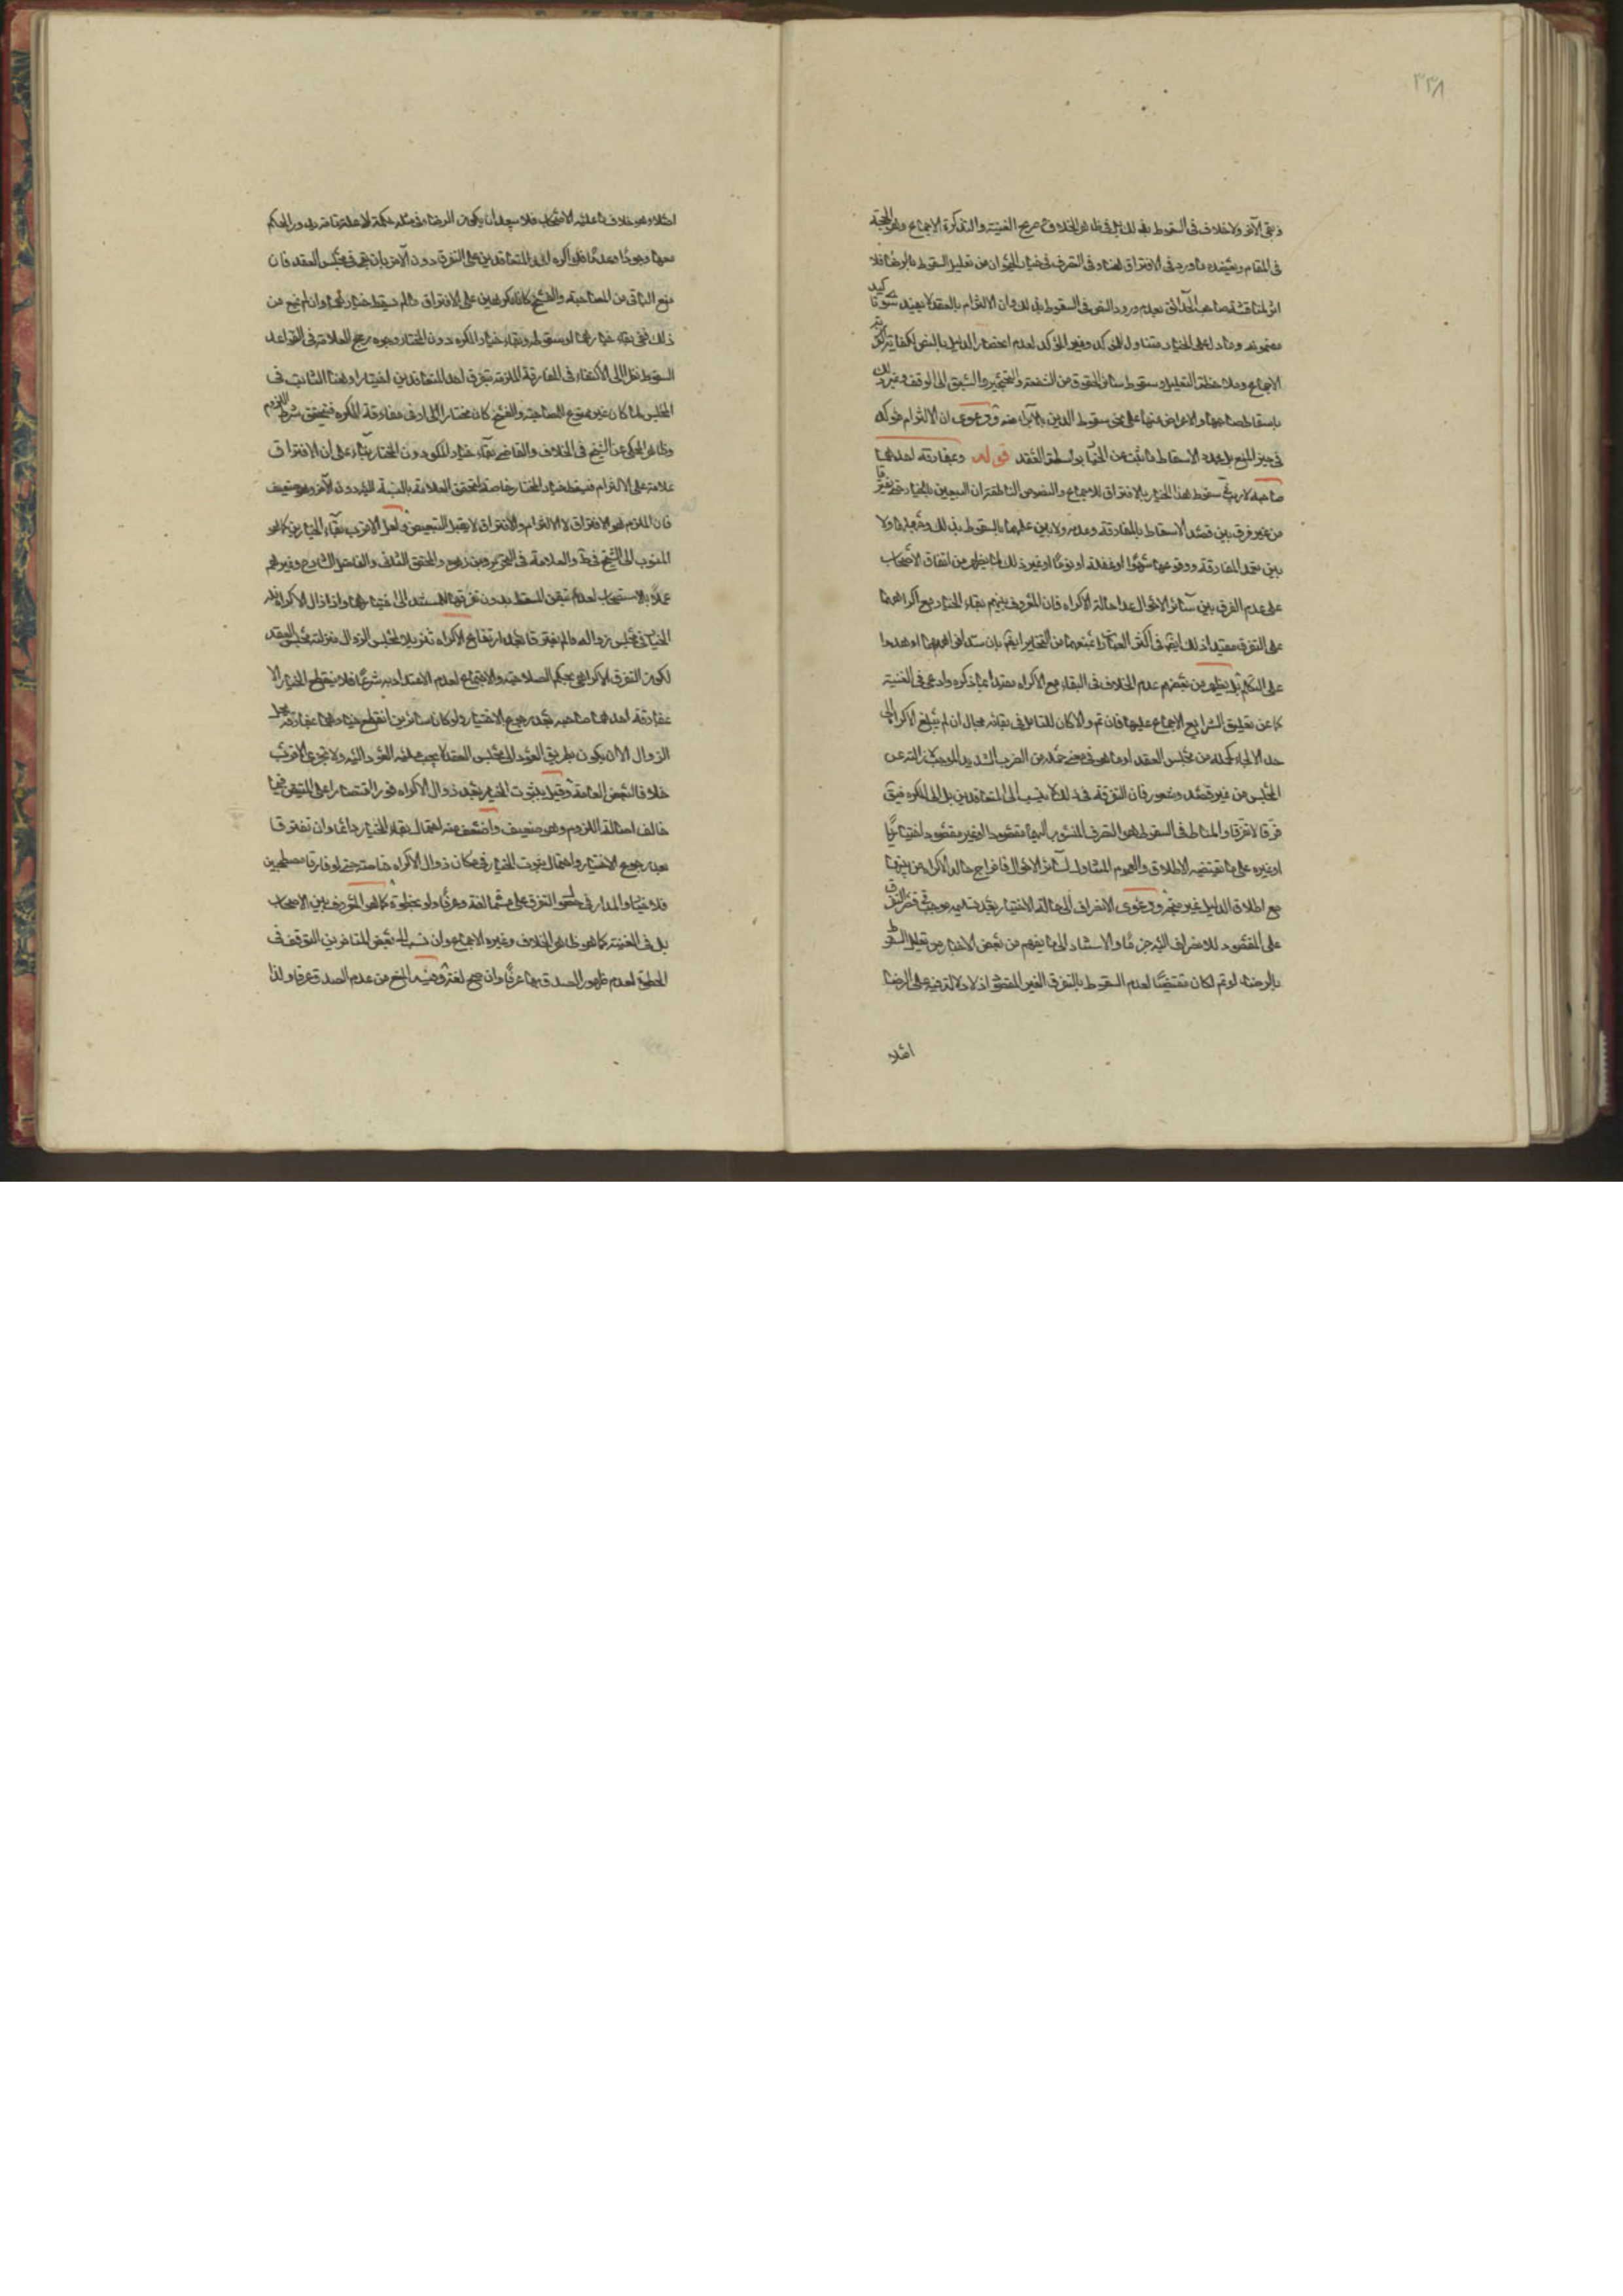 ٣٣٨
وبقى الآخر ولا خلاف فى السقوط بذلك بل فى ظاهر الخلاف صريح الغنية والتذكرة الاجماع وهو الحجة
فى المقام ويعضده ما ورد فى الافتراق هنا وفى التصرف فى خيار الحيوان من تعليل السقوط بالرضا فلا
اثر لمناقشة صاحب الحدائق بعدم ورود النص فى السقوط بذلك وان الالتزام بالعقد لا يفيد
مضمونه وما دل على الخيار متناول للمؤكد وغير المؤكد لعدم انحصار الدليل بالنص لكفاية
الاجماع وملاحظة التعليل وسقوط سائر الحقوق من الشفعة والتحجير والسبق الى الوقف وغير ذلك
باسقاط صاحبها والاعراض عنها على نحو سقوط الدين بالابراء منه ودعوى ان الالتزام
فى حيز المنع بل مجرد الاسقاط ما ثبت من الخيار بواسطة العقد قوله وبمفارقة احدهما
صاحبه لا ريب فى سقوط هذا الخيار بالافتراق للاجماع والنصوص الناطقة بان البيعين بالخيار حتى يفترقا
من غير فرق بين قصد الاسقاط بالمفارقة وعدمه ولا بين علمهما بالسقوط بذلك وجهلهما ولا
بين تعمد المفارقة ووقوعها سهوا او غفلة او نوما او غير ذلك لما يظهر من اتفاق الاصحاب
على عدم الفرق بين سائر الاحوال عدا حالة الاكراه فان المعروف بينهم بقاء الخيار مع اكراههما
على التفرق مقيدا ذلك ايضا فى اكثر العبارات بمنعهما من التخاير ايضا بان سد افواههما او هددا
على التكلم بل يظهر من بعضهم عدم الخلاف فى البقاء مع الاكراه مقيدا بما ذكره وادعى فى الغنية
كما عن تعليق الشرايع الاجماع عليهما فان تم والا كان للتامل فى بقائه مجال ان لم يبلغ الاكراه الى
حد الالجاء كحمله من مجلس العقد او ما هو فى معنى حمله من الضرب الشديد الموجب لازالته عن
المجلس من غير قصد وشعور فان التفرقة فى ذلك لا ينسب الى المتعاقدين بل الى المكره فيق
فرقا لا تفرقا والمناط فى السقوط هو التصرف المنسوب اليهما مقصودا او غير مقصود اختياريا
او غيره على ما يقتضيه الاطلاق والعموم المتناول لسائر الاحوال فاخراج حالة الاكراه من بينها
مع اطلاق الدليل غير متجه ودعوى الانصراف الى حالة الاختيار بعد تسليمه موجب قصر التفرق
على المقصود للانصراف اليه جزما والاستناد الى ما يفهم من بعض الاخبار من تعليل السقوط
بالرضا لو تم لكان مقتضيا لعدم السقوط بالتفرق الغير المقصود اذ لا دلالة فيه على الرضا
اصلا
اصلا وهو خلاف ما عليه الاصحاب فلا يبعد ان يكون الرضا فى مثله حكمة لا علة تامة يدور الحكم
معها وجودا وعدما فلو اكره احد المتعاقدين على التفرق دون الآخر بان بقى فى مجلس العقد فان
منع الباقى من المصاحبة والفسخ كانا مكرهين على الافتراق فلم يسقط خيارهما وان لم يمنع من
ذلك ففى بقاء خيارهما او سقوطه وبقاء خيار المكره دون المختار وجوه رجح العلامة فى القواعد
السقوط نظرا الى الاكتفاء فى المفارقة الملزمة بتفرق احد المتعاقدين اختيارا وهنا الثابت فى
المجلس لما كان غير ممنوع المصاحبة والفسخ كان مختارا فى مفارقة المكره فتحقق شرط اللزوم
وظاهر المحكى عن الشيخ فى الخلاف والقاضى بقاء خيار المكره دون المختار بناء على ان الافتراق
علامة على الالتزام فيسقط خيار المختار خاصة لتحقق العلامة بالنسبة اليه دون الآخر وهو ضعيف
فان الملزم هو الافتراق لا الالتزام والافتراق لا يقبل التبعيض ولعل الاقرب بقاء الخيارين كما هو
المنسوب الى الشيخ فى ط والعلامة فى التحرير وبن زهره والمحقق الثانى والفاضل وغيرهم
عملا بالاستصحاب لعدم تيقن المسقط بدون تفرقهما المستند الى اختيارهما واذا زال الاكراه
الخيار فى مجلس زواله ما لم يفترقا بعد ارتفاع الاكراه تنزيلا لمجلس الزوال منزلة مجلس العقد
لكون التفرق الاكراهى بحكم المصاحبة والاجتماع لعدم الاعتداد به شرعا فلا ينقطع الخيار الا
بمفارقة احدهما صاحبه بعد رجوع الاختيار ولو كان سائرين انقطع خيارهما بمفارقة محل
الزوال الا ان يكون بطريق العود الى مجلس العقد لا يجب عليه العود اليه ولا يجوز على الاقرب
خلافا لبعض العامة وقيل بثبوت الخيار بعد زوال الاكراه فورا اقتصارا على المتيقن فيما
خالف اصالة اللزوم وهو ضعيف واضعف منه احتمال بقاء الخيار دائما وان تفرقا
بعد رجوع الاختيار واحتمال ثبوت الخيار فى مكان زوال الاكراه خاصة حتى لو فارقا مصطحبين
فلا خيار والمدار فى حصول التفرق على مسماه لغة وعرفا ولو بخطوة كما هو المعروف بين الاصحاب
بل فى الغنية كما هو ظاهر الخلاف وغيره الاجماع وان نسب الى بعض المتاخرين التوقف فى
الخطوة لعدم ظهور الصدق بها عرفا وان صح لغة وفيه المنع من عدم الصدق عرفا ولذا